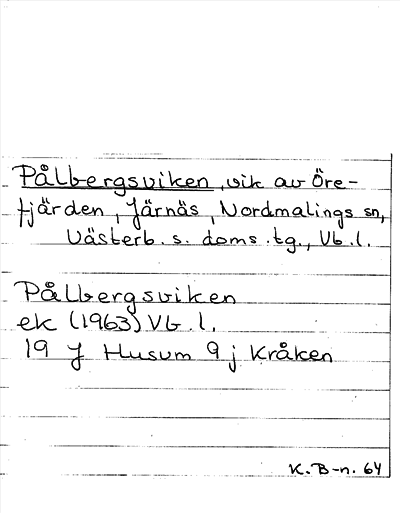 Pålbergsviken, vik av Öre-
fjärden, Järnäs, Nordmalings sn,
Västerb. s. doms. tg., Vb. l.
Pålbergsviken
ek (1963) Vb. l.
19 J Husum 9 j Kråken
K. B-n. 64